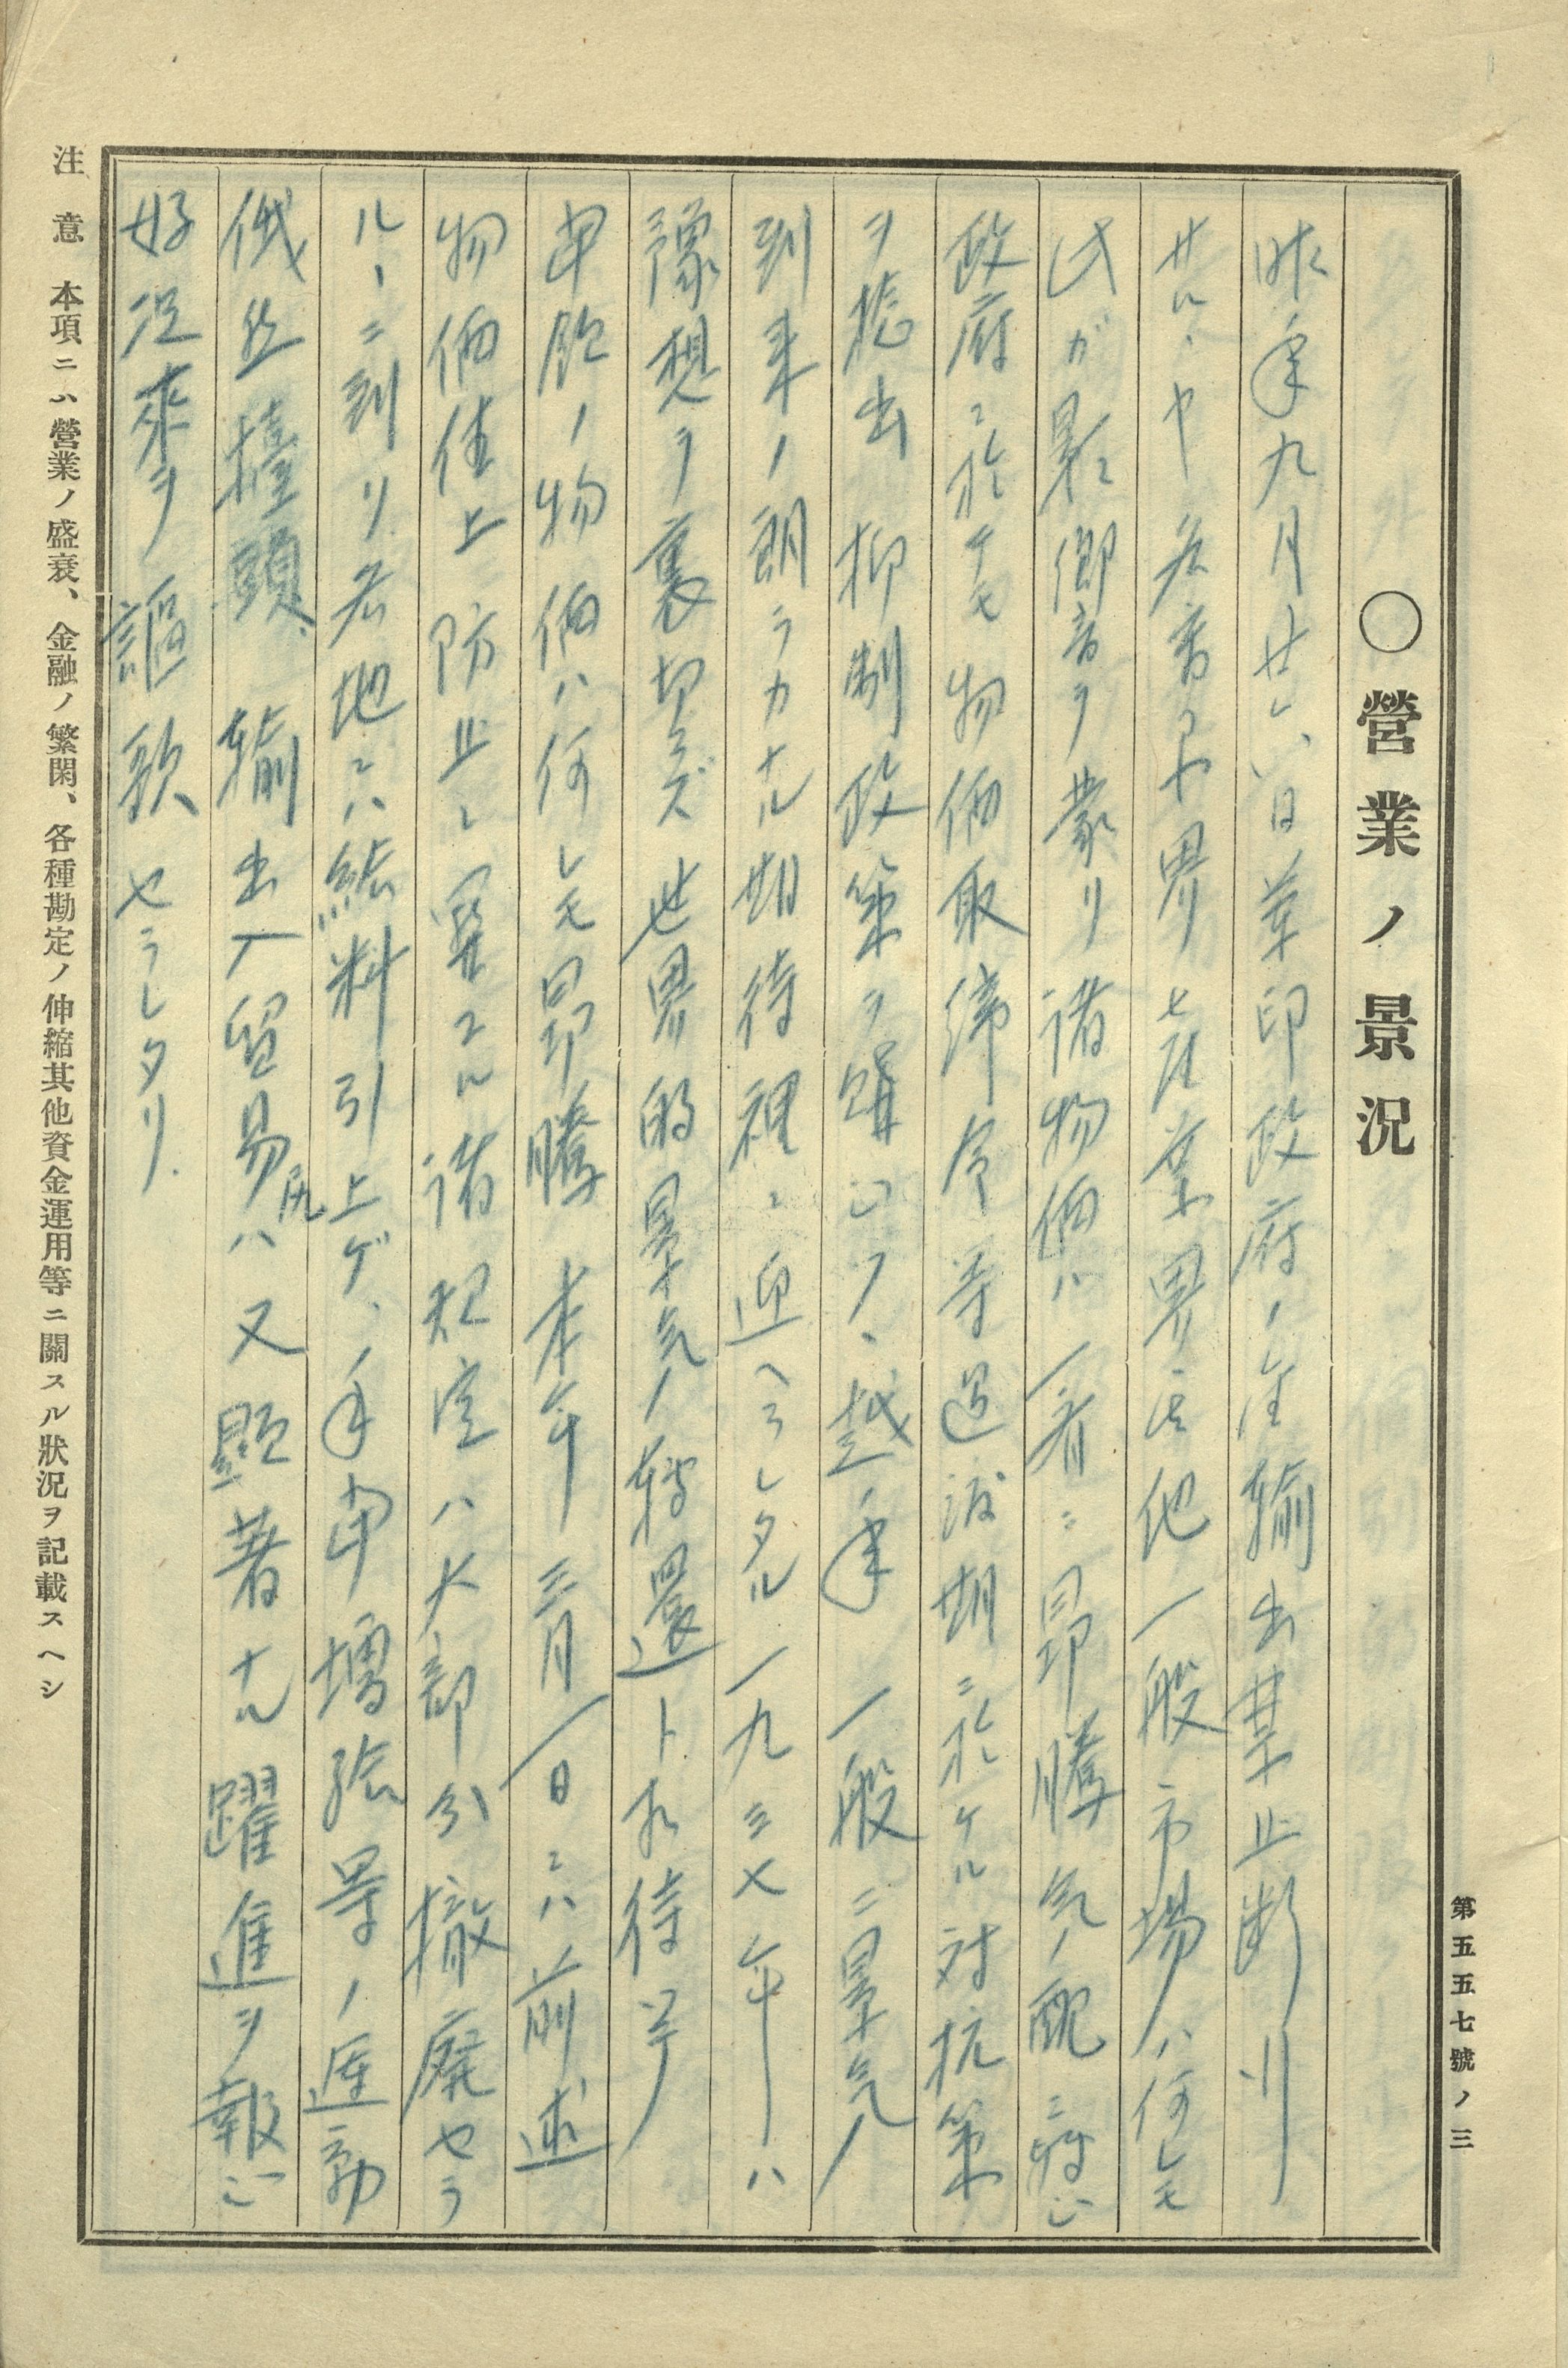 〇營業ノ景況
昨年九月廿六日蘭印政府ノ金輸出禁止断行
サルヽヤ産業界其他一般市場ハ何レモ
此ガ影響ヲ蒙リ諸物価ハ一斉ニ昂騰気配ニ転ジ
政府ニ於テモ物価取締令等過渡期ニ於ケル対抗策
ヲ捻出 抑制政策ヲ講ジツヽ越年 一般ニ景気
到来ノ朗ラカナル期待裡ニ迎ヘラレタル一九三七年ハ
豫想ヲ裏切ラズ世界的景気ノ転還ト相待ツ
申館ノ物価ハ何レモ昂騰 本年三月一日ニハ前述
物価値上防止ニ関スル諸規定ハ大部分撤廃セラ
ルヽニ到リ各地ニハ給料引上ゲ、手当増給等ノ運動
俄然擡頭 輸出入貿易尻ハ又顕著ナル躍進ヲ報ジ
好況来ヲ謳歌セラレタリ
注意 本項ニハ營業ノ盛衰、金融ノ繁閑、各種勘定ノ伸縮其他資金運用等ニ關スル狀況ヲ記載スヘシ
第五五七號ノ三